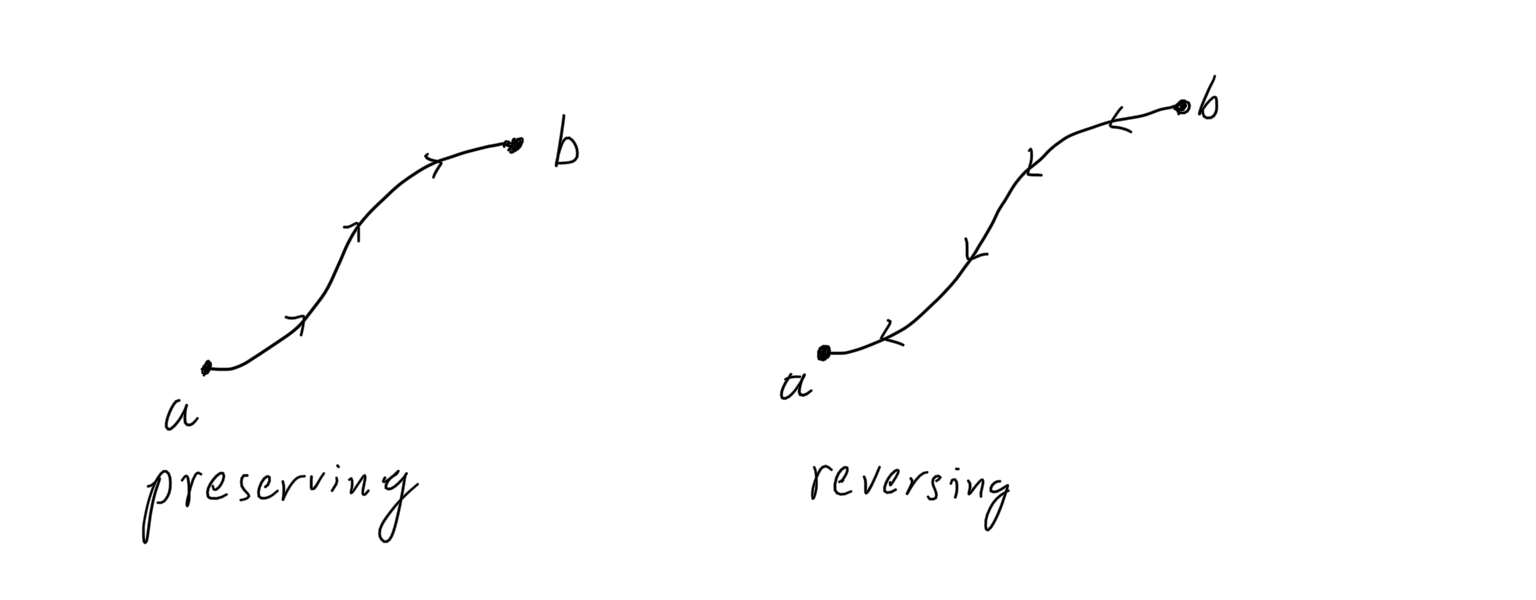 b
b
a
a
preserving
reversing